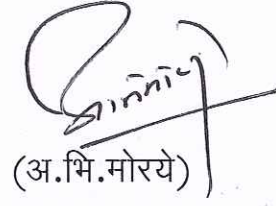 (अ.भि.मोरये)